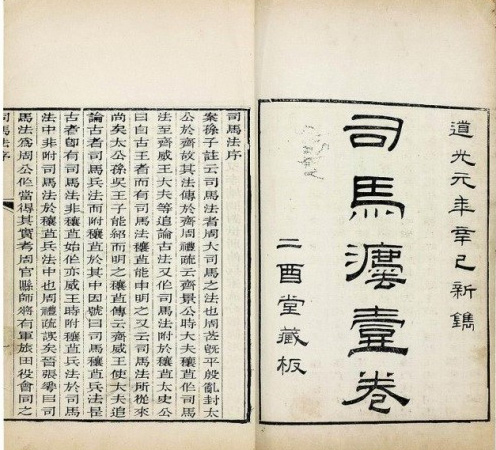 道光元年辛巳新鐫
司馬灋壹卷
二酉堂藏板
司馬法序
案孫子註云司馬法者周大司馬之法也周武既平殷亂封太
公於齊故其法傳於齊周禮疏云齊景公時大夫穰苴作司馬
法至齊威王大夫等追論古法又作司馬法附於穰苴太史公
曰自古王者而有司馬法穰苴能申明之又云司馬法所從來
尚矣太公孫吳王子能紹而明之穰苴傳云齊威王使大夫追
論古者司馬兵法而附穰苴於其中因號曰司馬穰苴兵法是
古者即有司馬法非穰苴始作亦威王時附穰苴兵法於司馬
法中非附司馬法於穰苴兵法中也周禮疏誤矣晉張華曰司
馬法爲周公作當得其實考周官縣師將有軍旅田役會同之
司馬法序